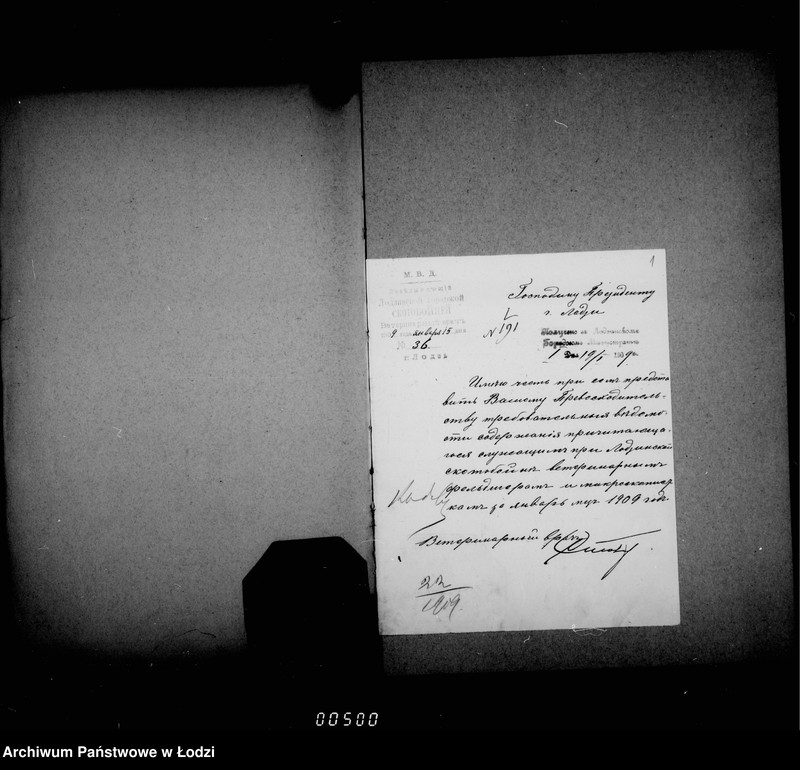 1
М. В. Д.
января 15
36.
г. Лодзь
Господину Президенту
г. Лодзи
N 191
Получено в Лодзинском
19/I 1909 г.
Имею честь при сем предста-
вить Вашему Превосходитель-
ству требовательныя ведомо-
сти содержания причитающа-
гося служащимъ при Лодзинской
скотобойне ветеринарнымъ
фельдшерамъ и микроскопист-
камъ за январь мцъ 1909 года
Ветеринарный врачъ
22
1909.
00500
Archiwum Państwowe w Łodzi